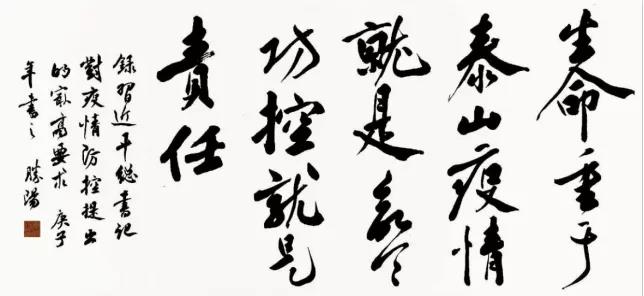 生命重于
泰山疫情
就是命令
防控就是
責任
錄習近平總書記
對疫情防控提出
的最高要求 庚子
年書之 勝陽